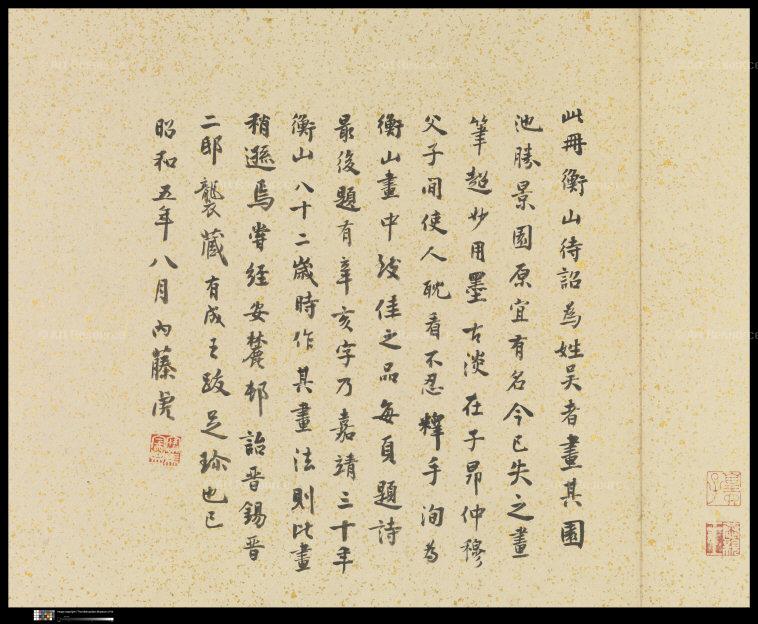 此冊衡山待詔為姓吳者畫其園
池勝景園原宜有名今已失之畫
筆超妙用墨古淡在子昂仲穆
父子間使人耽看不忍釋手洵為
衡山畫中致佳之品每頁題詩
最後題有辛亥字乃嘉靖三十年
衡山八十二歲時作其畫法則比畫
稍遜焉嘗經安麓邨詒晋錫晋
二邸襲藏有成王跋足珍也已
昭和五年八月內藤虎